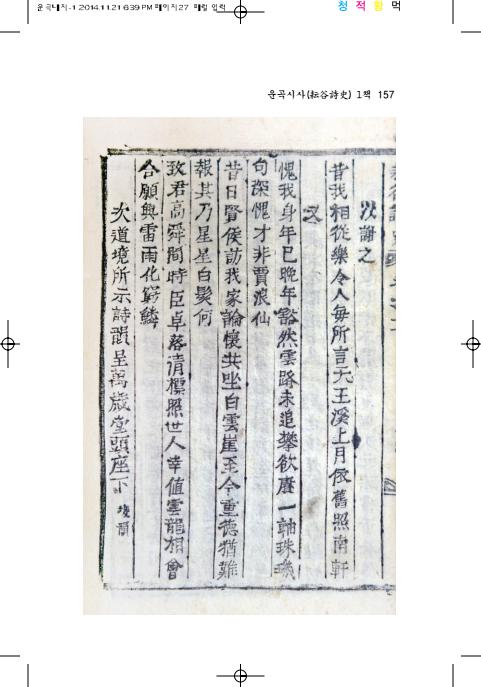 운곡내지-1 2014.11.21 6:39 PM 페이지27 매일 입력
청 적 황 먹
운곡시사(耘谷詩史) 1책 157
次謝之
昔我相從樂令人每所言无王溪上月依舊照南軒
又
愧我身年已晩年豁然雲路未追攀欲賡一軸珠璣
句深愧才非賈浪仙
昔日賢侯訪我家論懷共坐白雲崖至今重德猶難
報其乃星星白髮何
致君高舜間時臣卓落清標照世人幸値雲龍相會
合願興雷雨化窮鱗
次道境所示詩韻呈萬歲堂頭座下 峻韻